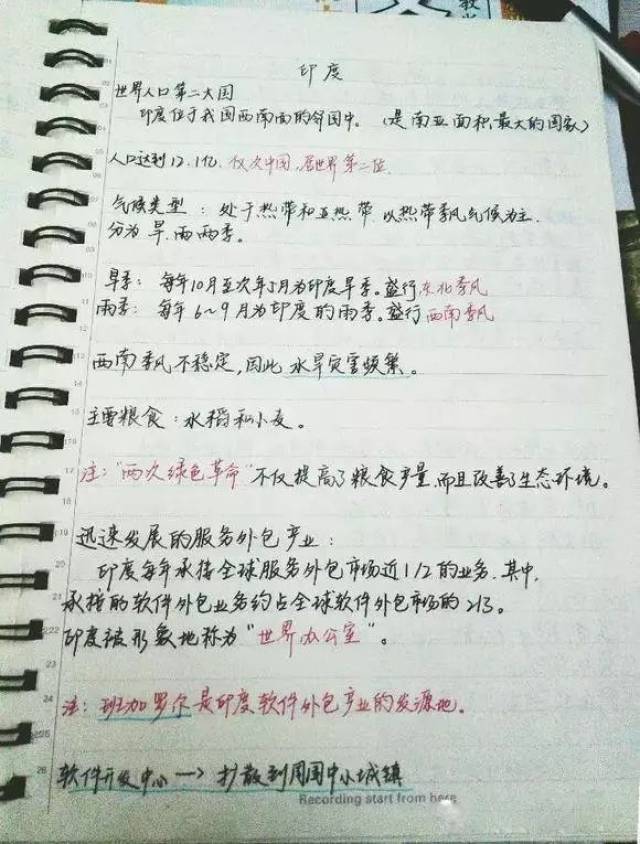 印度
世界人口第二大国
印度位于我国西南面的邻国中。(是南亚面积最大的国家)
人口达到12.1亿,仅次中国,居世界第二位.
气候类型:处于热带和亚热带,以热带季风气候为主.
分为旱、雨两季。
旱季:每年10月至次年5月为印度旱季。盛行东北季风
雨季:每年6~9月为印度的雨季。盛行西南季风
西南季风不稳定,因此水旱灾害频繁。
主要粮食:水稻和小麦。
注:"两次绿色革命"不仅提高了粮食产量,而且改善了生态环境。
迅速发展的服务外包产业:
印度每年承接全球服务外包市场近1/2的业务.其中,
承接的软件外包业务约占全球软件外包市场的2/3。
印度被形象地称为"世界办公室"。
注:班加罗尔是印度软件外包产业的发源地。
软件开发中心→扩散到周围中小城镇
Recording start from here